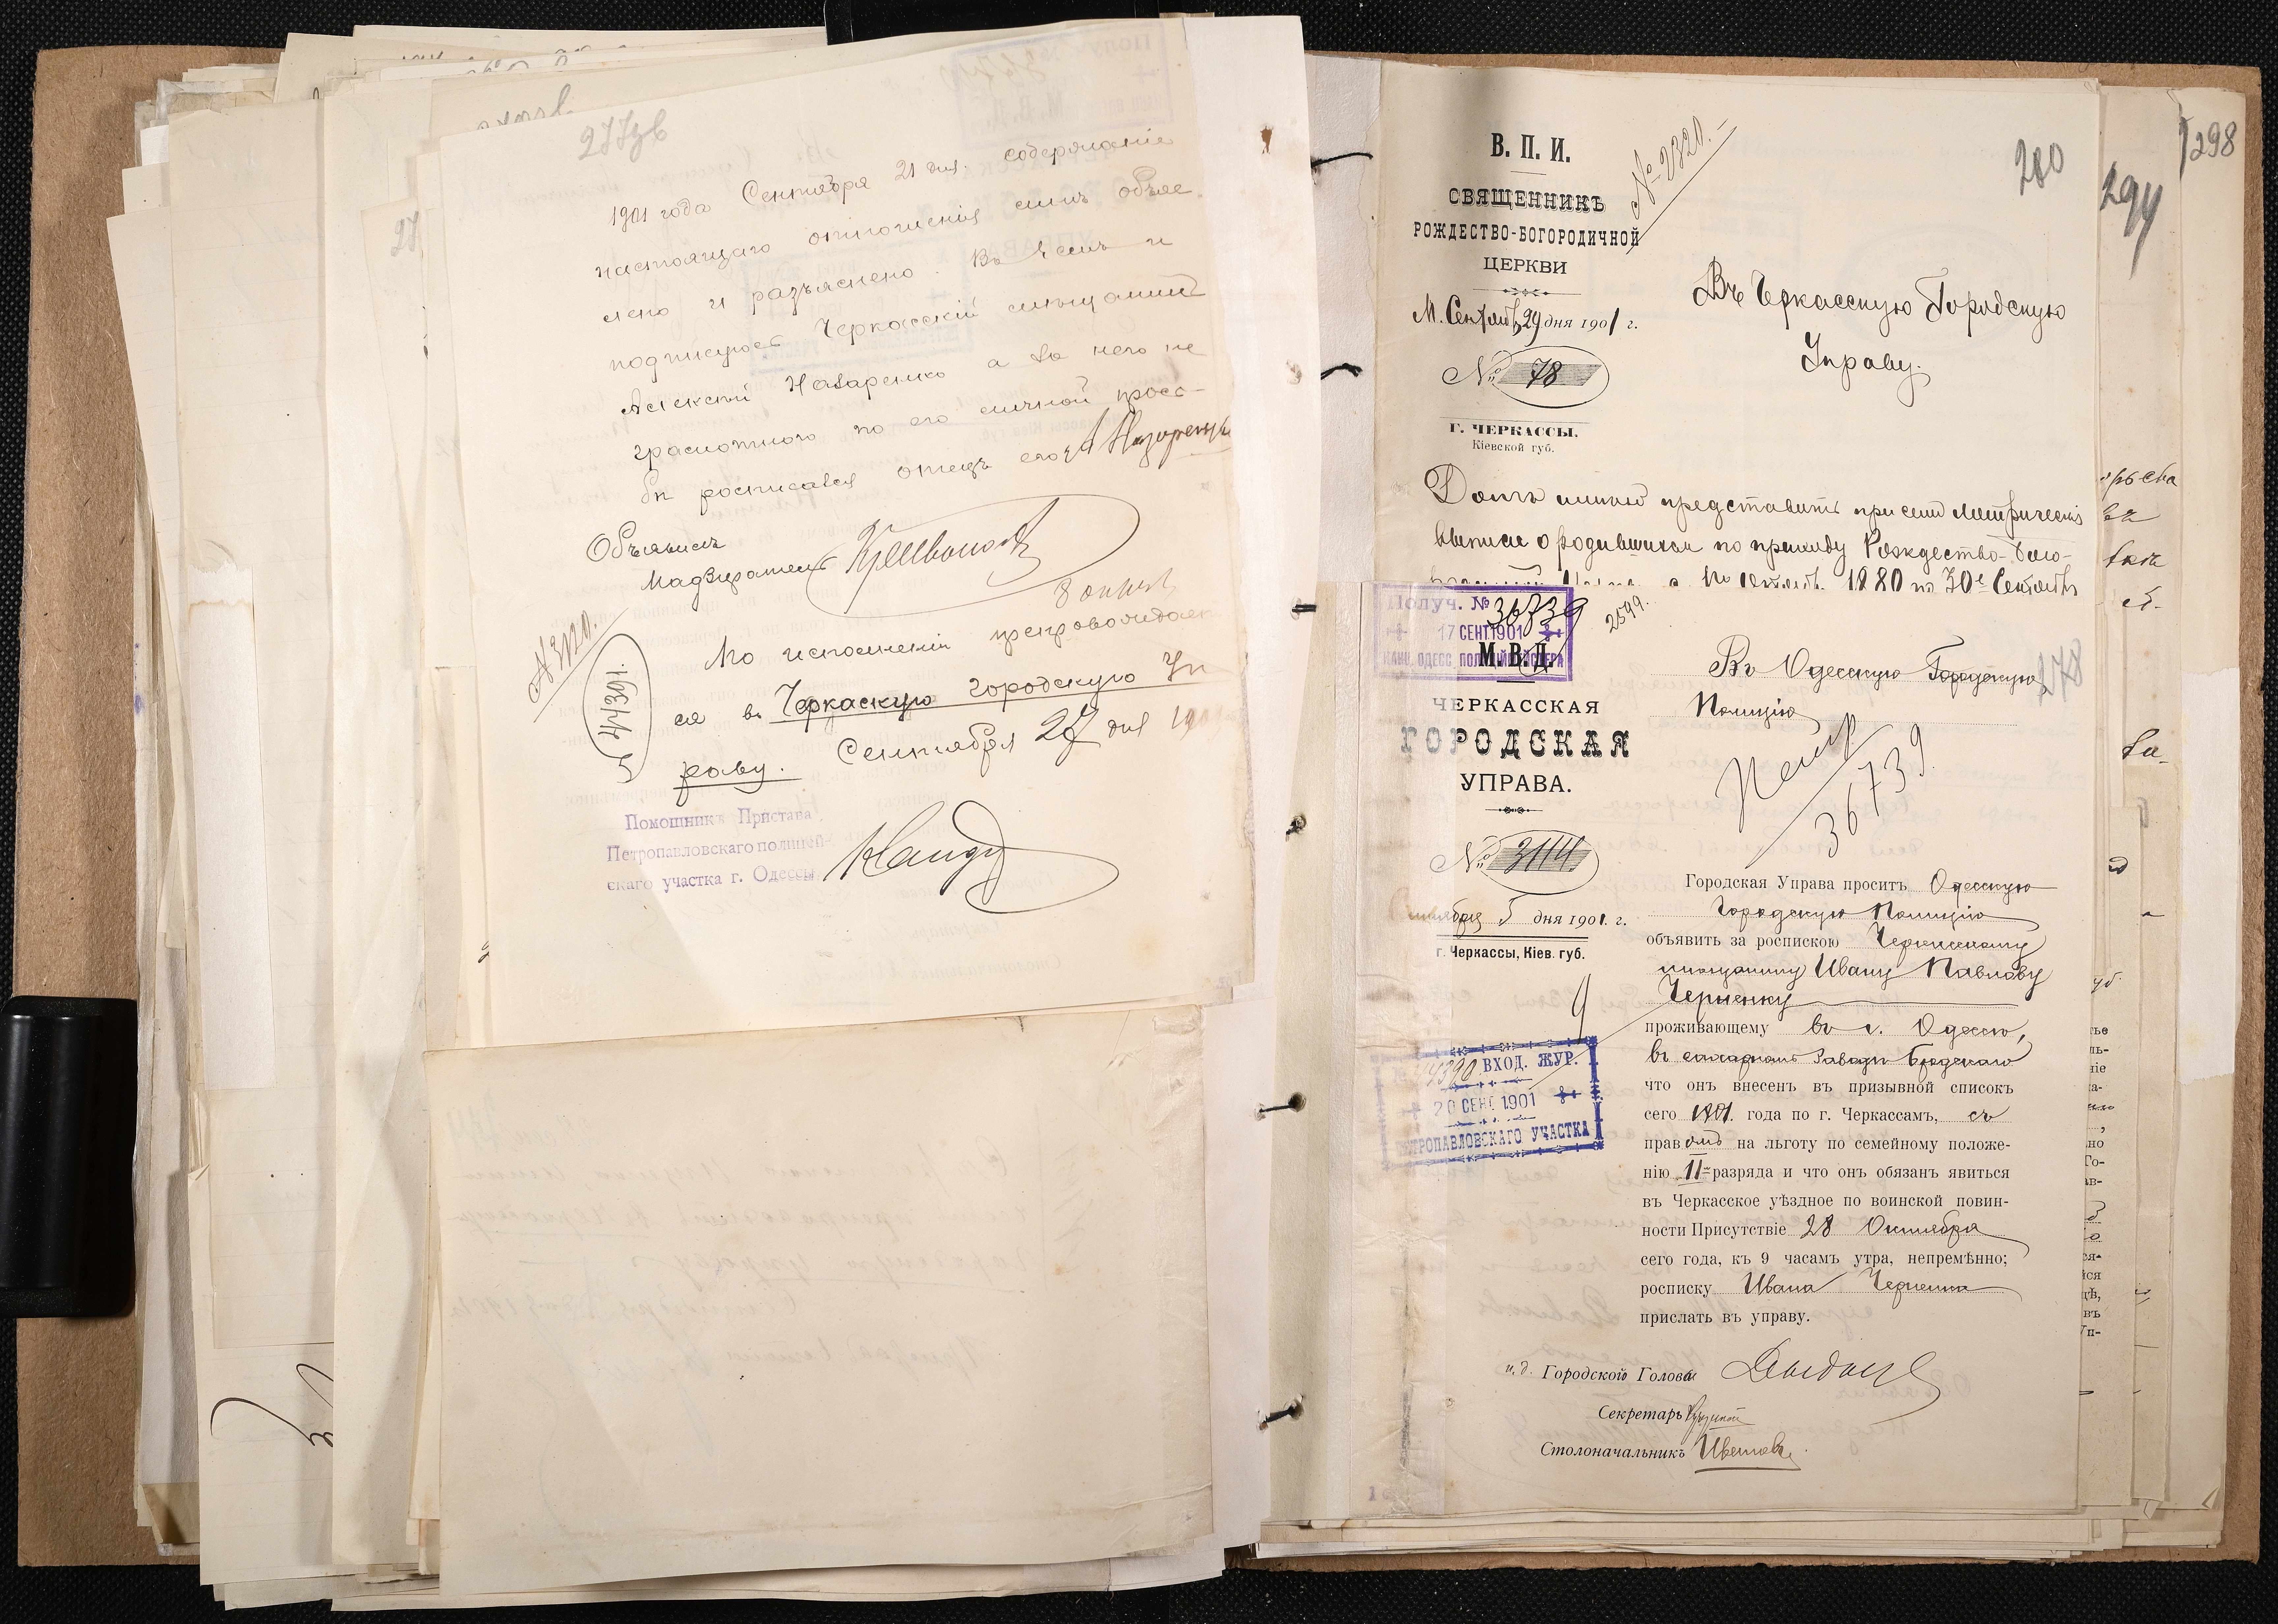 277зв
1901 года Сентября 21 дня. содержание
настоящаго отношения мнѣ объяв-
лено и разъяснено. Въ чемъ и
подписуюсь Черкасскій мѣщанинъ
Алексѣй Назаренко а за него не
грамотнаго по его личной прось-
бѣ росписался отецъ его А Назаренко
Объявилъ
Надзиратель
По исполненіи препровождает
ся въ Черкаскую городскую Уп
раву. Сентября 27 дня 1901
№ 3120.
44391.
Помощникъ Пристава
Петропавловскаго полицей-
скаго участка г. Одессы
298
294
280
В. П. И.
№ 2320.
СВЯЩЕННИКЪ
РОЖДЕСТВО-БОГОРОДИЧНОЙ
ЦЕРКВИ
М. Сентяб. 29 дня 1901 г.
№ 78
Г. ЧЕРКАССЫ.
Кіевской губ.
Въ Черкасскую Городскую
Управу.
Долгъ имѣю представить при семъ Метрическія
выписи о родившихся по приходу Рождество-Бого-
1880 по 30е Сентября
Получ. № 36739
17 СЕНТ. 1901
КАНЦ. ОДЕСС. ПОЛИЦІЙМЕЙСТЕРА
2599.
М. В. Д.
ЧЕРКАССКАЯ
ГОРОДСКАЯ
УПРАВА.
№ 3114
Сентября 5 дня 1901. г.
г. Черкассы, Кіев. губ.
278
Въ Одесскую Городскую
Полицію
Петр
36739
9
44390 ВХОД. ЖУР.
20 СЕН 1901
ПЕТРОПАВЛОВСКАГО УЧАСТКА
Городская Управа проситъ Одесскую
Городскую Полицію
объявить за роспискою Черкасскому
мѣщанину Ивану Павлову
Черненку
проживающему въ г. Одессѣ,
въ сахарномъ заводѣ Бродскаго
что онъ внесенъ въ призывной списокъ
сего 1901 года по г. Черкассамъ, съ
правомъ на льготу по семейному положе-
нію II разряда и что онъ обязанъ явиться
въ Черкасское уѣздное по воинской повин-
ности Присутствіе 28 Октября
сего года, къ 9 часамъ утра, непремѣнно;
росписку Ивана Черненка
прислать въ управу.
и. д. Городской Головы
Секретарь
Столоначальникъ Цвѣтовъ